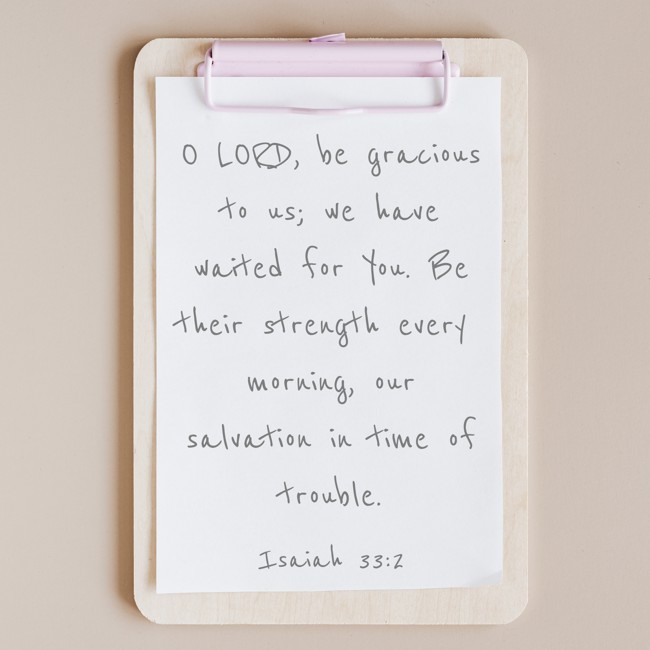 O LORD, be gracious
to us; we have
waited for You. Be
their strength every
morning, our
salvation in time of
trouble.
Isaiah 33:2